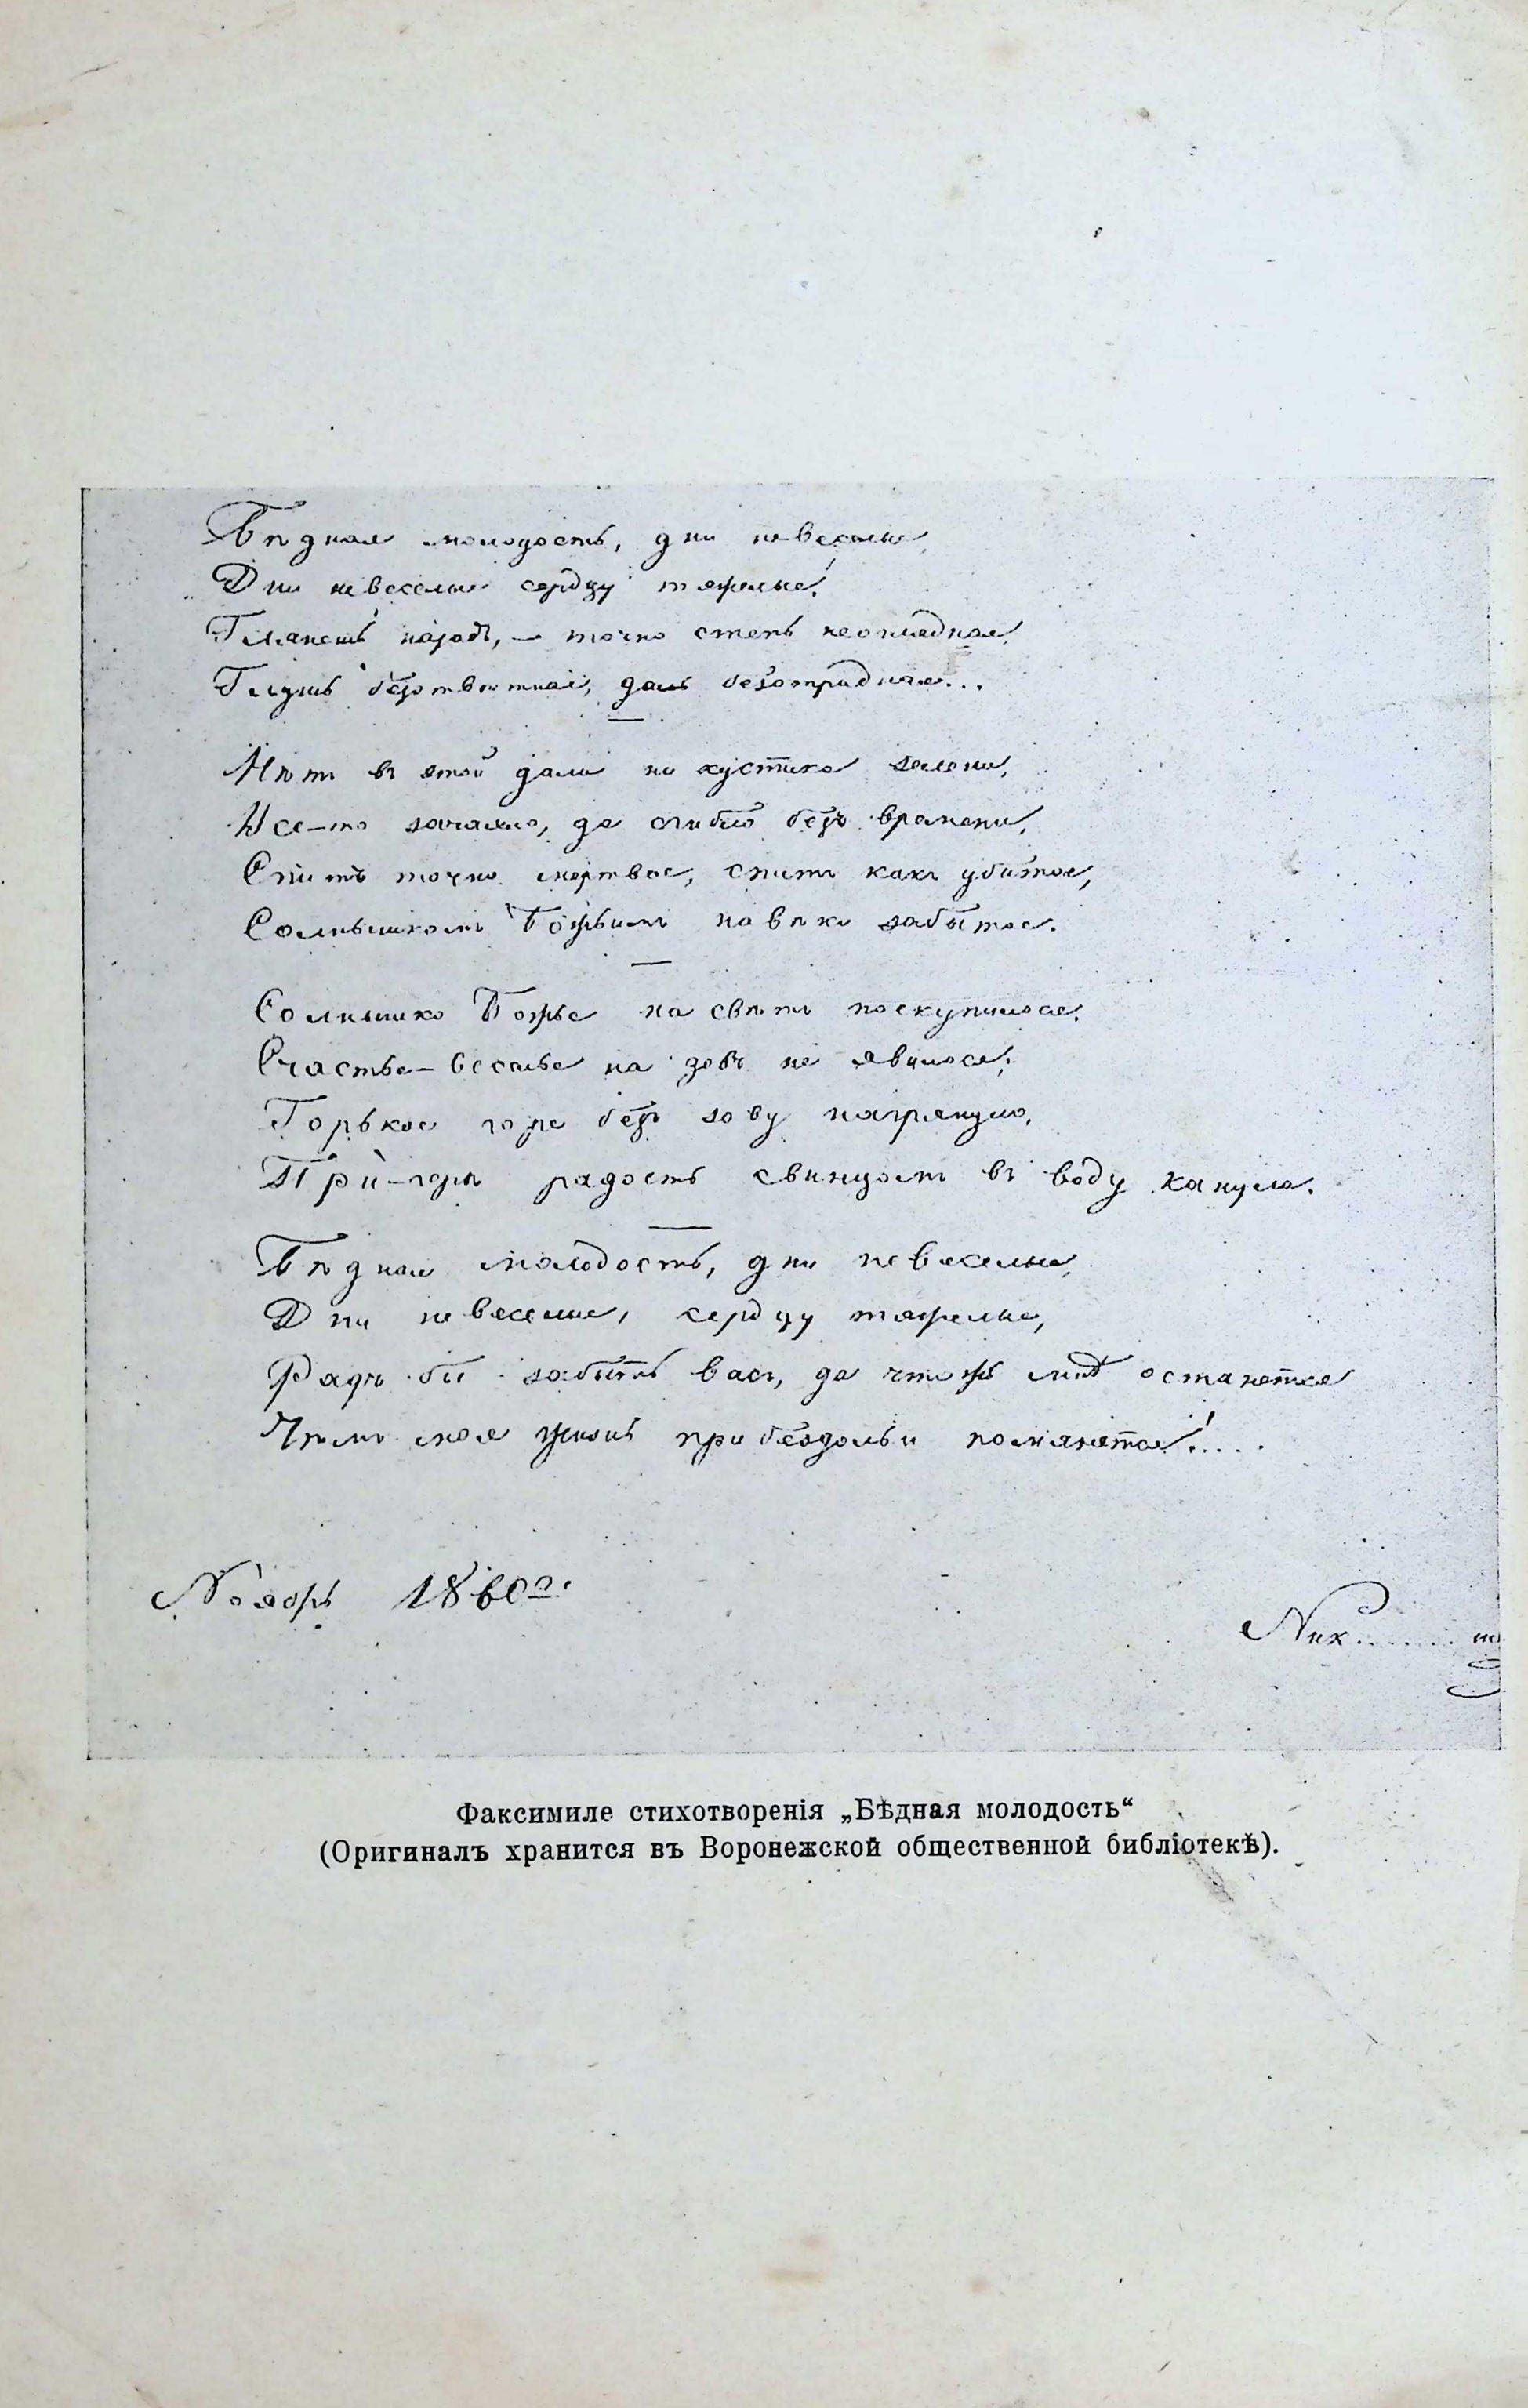 Бѣдная молодость, дни невеселые,
Дни невеселые сердцу тяжелые!
Глянешь назадъ, — точно степь неоглядная,
Глушь безотвѣтная, даль безотрадная...
Нѣтъ въ этой дали ни кустика зелени,
Все-то зачахло, да сгибло безъ времени,
Спитъ точно мертвое, спитъ какъ убитое,
Солнышкомъ Божьимъ на вѣки забытое.
Солнышко Божье на свѣтъ поскупилося.
Счастье-веселье на зовъ не явилося;
Горькое горе безъ зову нагрянуло,
При-горѣ радость свинцомъ въ воду канула.
Бѣдная молодость, дни невеселые,
Дни невеселые, сердцу тяжелые,
Радъ бы забыть васъ, да что жъ мнѣ останется
Чѣмъ моя жизнь при бездольи помянется!.....
Ноябрь 1860 г.
Ник........
Факсимиле стихотворенія „Бѣдная молодость“
(Оригиналъ хранится въ Воронежской общественной библіотекѣ).